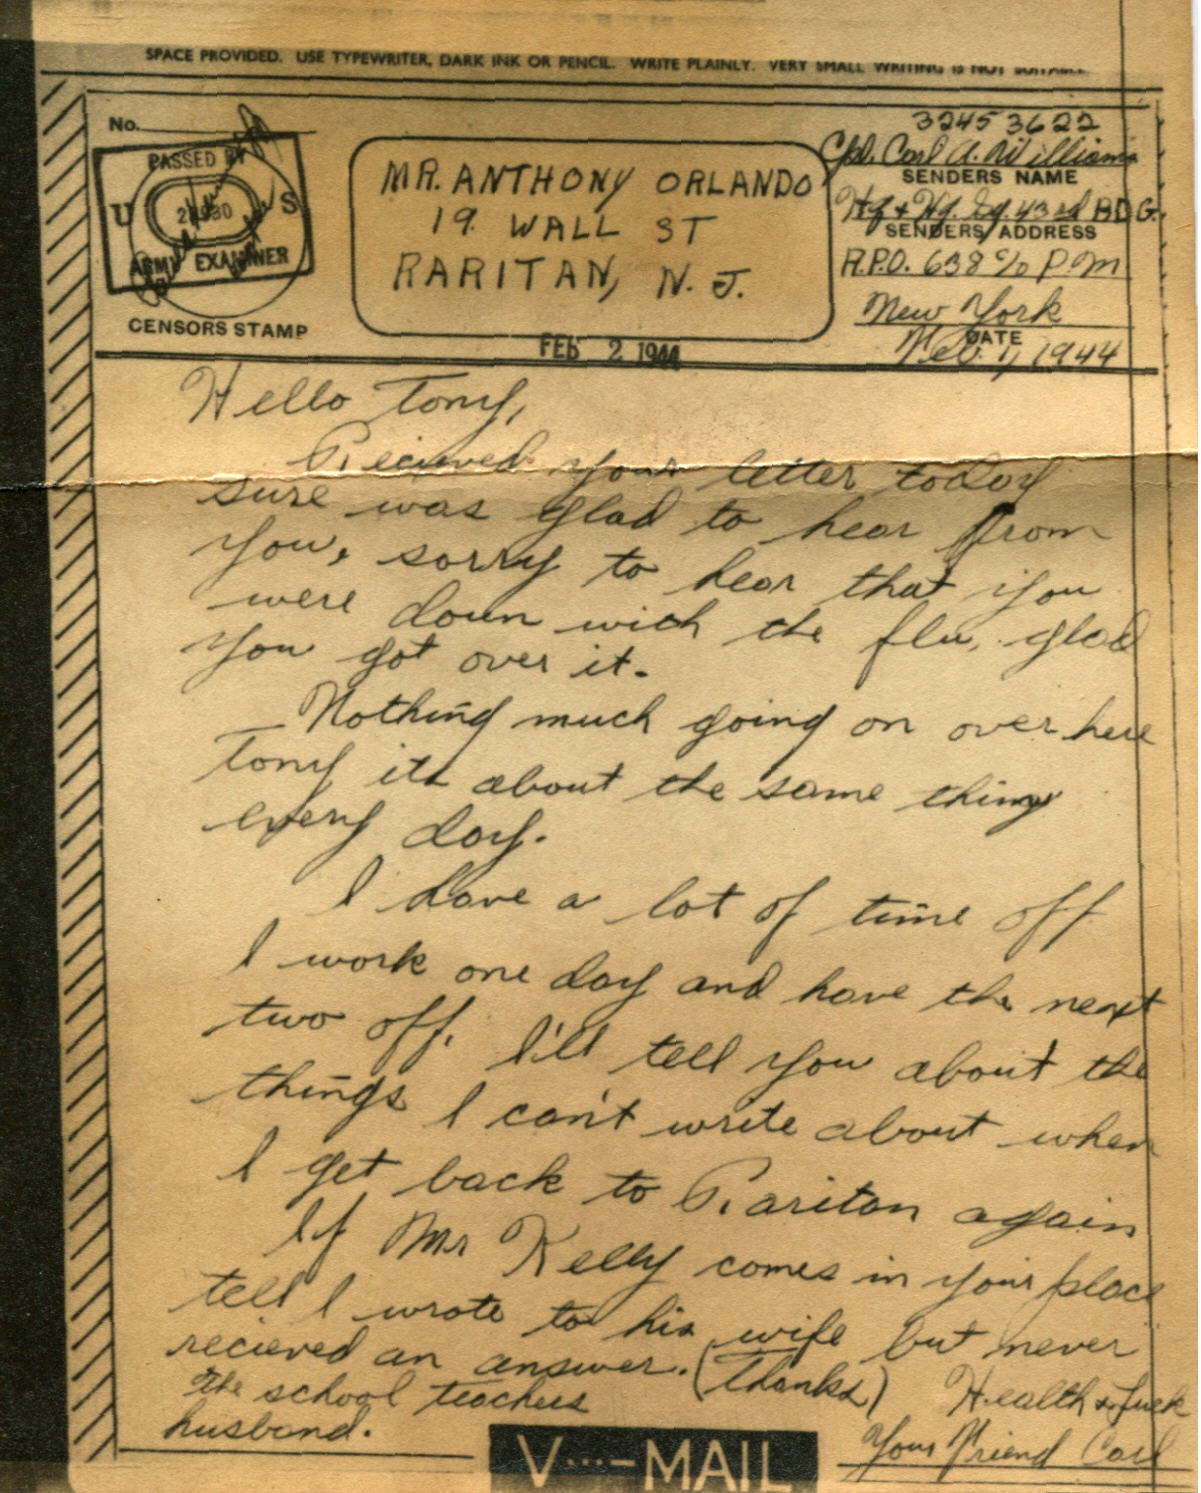 SPACE PROVIDED. USE TYPEWRITER, DARK INK OR PENCIL. WRITE PLAINLY. VERY SMALL WRITING IS NOT SUITABLE.
No.
PASSED BY
U S
ARMY EXAMINER
CENSORS STAMP
MR. ANTHONY ORLANDO
19 WALL ST
RARITAN, N. J.
FEB 2 1944
32453622
Cpl. Carl A. Williams
SENDERS NAME
Hq + Hq. Sq. 43rd BDG.
SENDERS ADDRESS
A.P.O. 638 % P.M
New York
DATE
Feb 1, 1944
Hello Tony,
Recieved your letter today
sure was glad to hear from
you, sorry to hear that you
were down with the flu, glad
you got over it.
Nothing much going on over here
Tony its about the same thing
every day.
I have a lot of time off
I work one day and have the next
two off. I'll tell you about the
things I can't write about when
I get back to Raritan again
If Mr Kelly comes in your place
tell I wrote to his wife but never
recieved an answer. (Thanks)
The school teachers
husband.
Health & Luck
Your Friend Carl
V···-MAIL